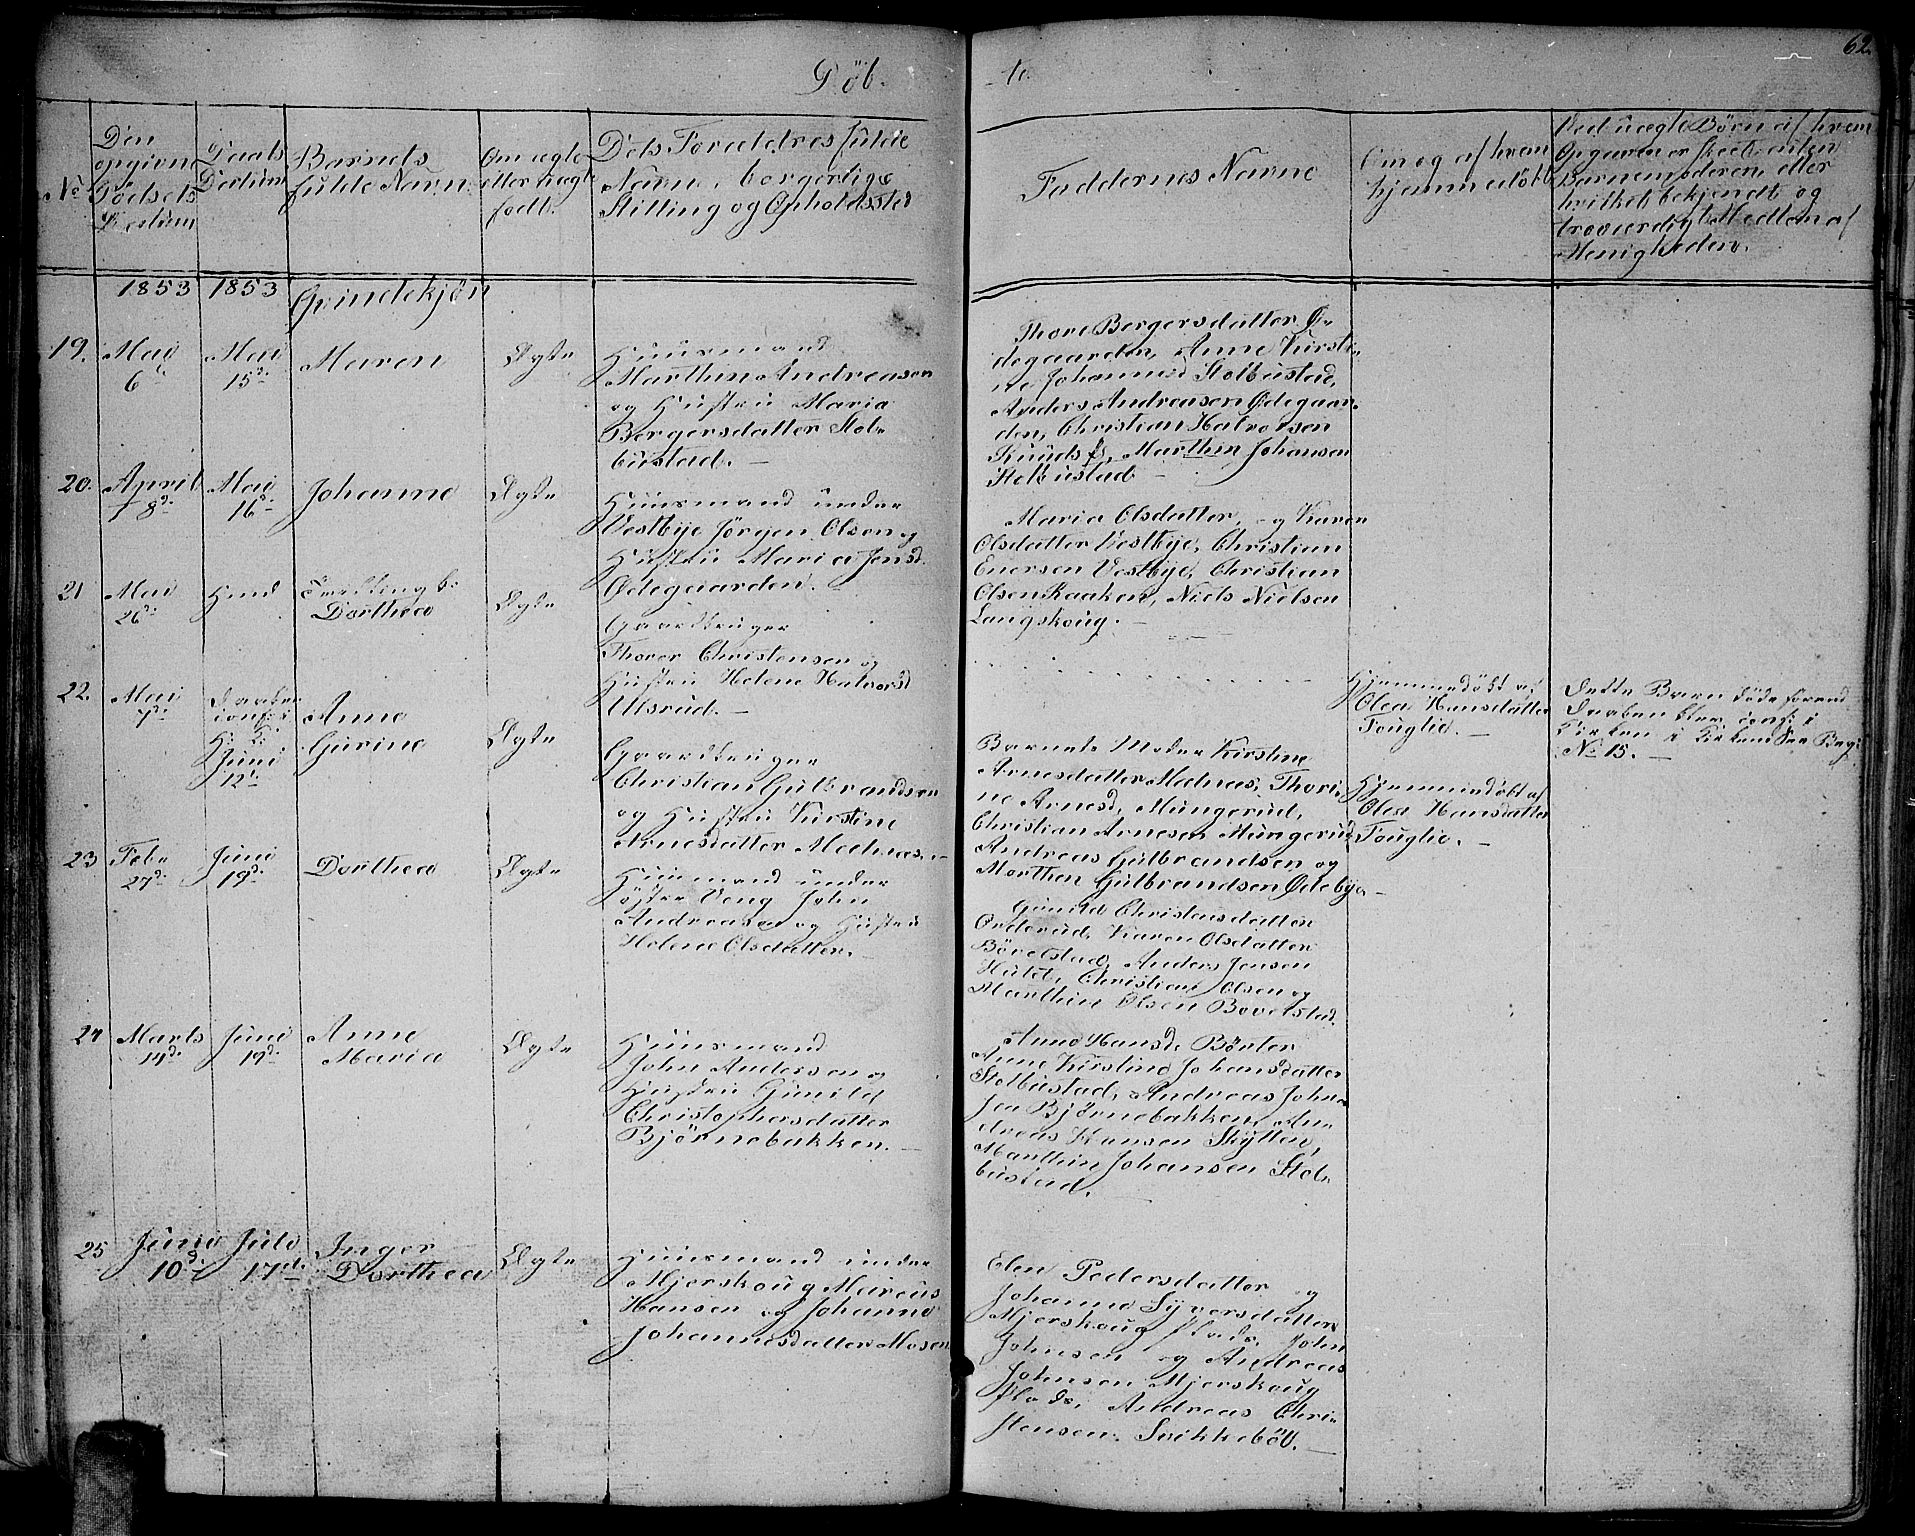 Döb-
te.
62.
No
Den
opgivne
Födsels
Datum
Daabs
Datum
Barnets
fulde Navn.
Om ægte
eller uægte
født.
Dets Forældres fulde
Navne, borgerlige
Stilling og Opholdssted
Faddernes Navne
Om og af hvem
hjemmedöbt
Ved uægte Børn af hvem
Opgaven er skeet, enten
Barnemoderen eller
hvilket bekjendt og
troværdigt Medlem af
Menigheden.
1853
1853
Qvindekjön
19.
Mai
6
Mai
15d.
Maren
Ægte
Huusmand
Marthin Andreasen
og Hustru Maria
Bergersdatter Stol-
bustad. —
Thore Bergersdatter Ø-
degaarden, Anne Kirsti-
ne Johannesd Stolbustad,
Anders Andreasen Ødegaar-
den, Christian Halvorsen
Knuds, Marthin Johansen
Stolbustad —
20.
April
8d.
Mai
16d.
Johanne
Ægte
Huusmand under
Vestbye Jörgen Olsen og
Hustru Maria Jensd
Ødegaarden. —
Maria Olsdatter, og Karen
Olsdatter Vestbye, Christian
Enersen Vestbye, Christian
Olsen Kaaken, Niels Nielsen
Langskoug. —
21
Mai
26d.
Hjmd
Tvilling b:
Dorthea
Ægte
Gaardbruger
Thorer Christensen og
Hustru Helene Halvorsd
Ulsrud. —
Hjemmedöbt af
Olea Hansdatter
Fouglie. —
Dette Barn døde forend
Daaben blev conf: i
Kirken i Kirken See Beg:
No 15. —
22.
Mai
7d.
Daaben
conf: i
K: K:
Juni
12te
Anne
Gurine
Ægte
Gaardbruger
Christian Gulbrandsen
og Hustru Kirstine
Arnesdatter Melnæs. —
Barnets Moder Kirstine
Arnesdatter Melnæs, Thori-
ne Arnesd, Mungerud,
Christian Arnesen Mungerud,
Andreas Gulbrandsen og
Morthen Gulbrandsen Ødebye —
Hjemmedöbt af
Olea Hansdatter
Fouglie. —
23
Feb-
27d.
Juni
19d.
Dorthea
Ægte
Huusmand under
Vöyster Veng John
Andreasen og Hustru
Helene Olsdatter. —
Gunild Christensdatter
Orderud, Karen Olsdatter
Bövelstad, Anders Jensen
Hulet, Christian Olsen og
Marthin Olsen Bovelstad.
24
Marts
14d.
Juni
19d.
Anne
Maria
Ægte
Huusmand
John Andersen og
Hustru Gunild
Christophersdatter
Björnebakken. —
Anne Hansd: Bönter
Anne Kirstine Johansdatter
Stolbustad, Andreas John-
sen Björnebakken, An-
dreas Hansen Skytten,
Marthin Johansen Stol-
bustad. —
25
Juni
10d.
Juli
17d.
Inger
Dorthea
Ægte
Huusmand under
Mjerskoug Marcus
Hansen og Johanne
Johannesdatter Mosen
Elen Pedersdatter og
Johanne Syversdatter
Mjerskoug Plads, John
Johnsen og Andreas
Johnsen Mjerskoug
Plads, Andreas Chri-
stensen. Svikkeböl. —